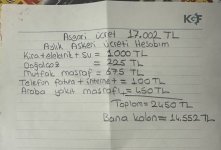 KCF
Asgari ücret 17.002 TL
Aylık Asgari ücreti Hesabım
Kira+elektrik+su = 1.000 TL
Doğalgaz = 225 TL
Mutfak masraf = 675 TL
Telefon fatura+internet = 100 TL
Araba yakıt masrafı = 450 TL
Toplam = 2450 TL
Bana kalan = 14.552 TL